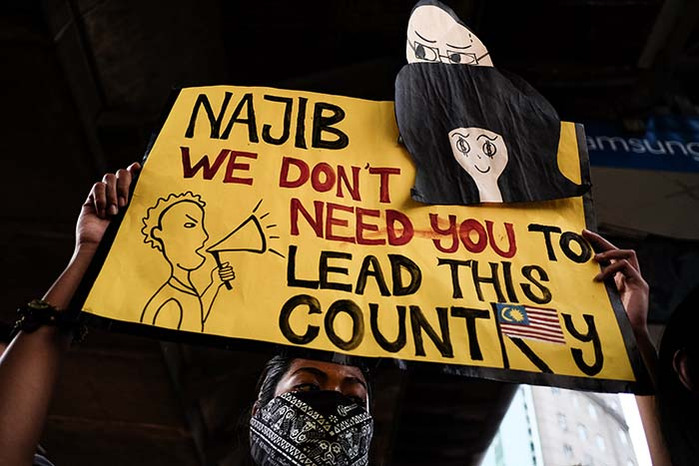 NAJIB
WE DON'T
NEED YOU TO
LEAD THIS
COUNTRY